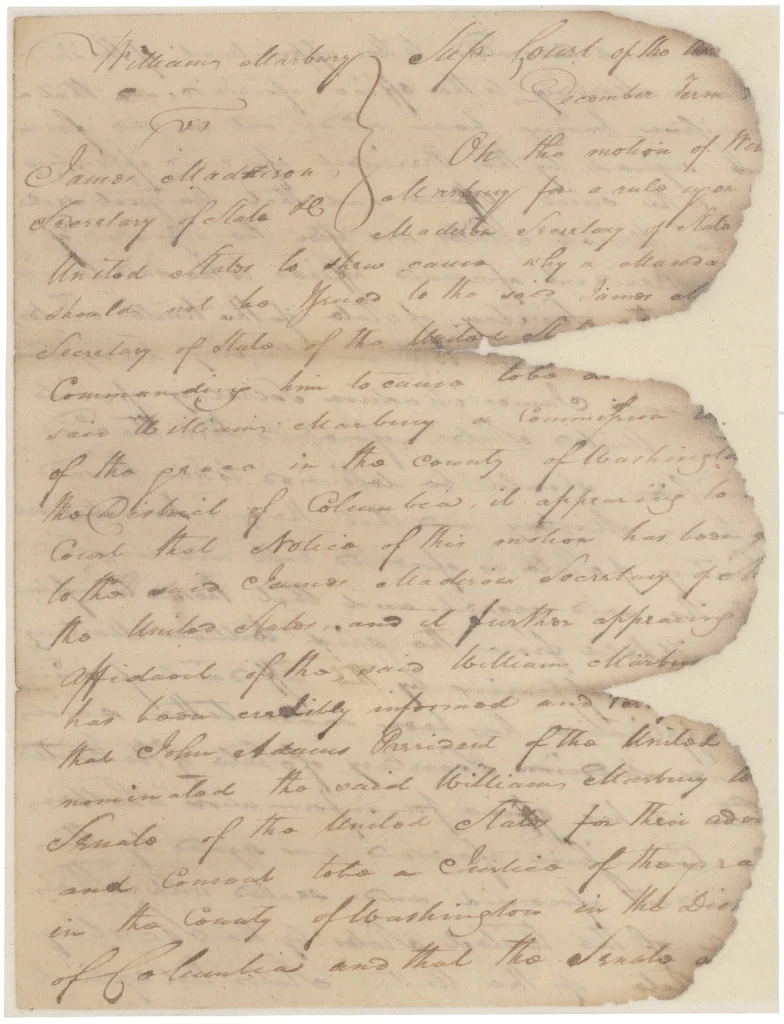 William Marbury
vs
James Madison
Secretary of State &c
Sup. Court of the
December Term
On the motion of
Marbury for a rule upon
Madison Secretary of State
United States to shew cause why a Manda
should not be Issued to the said James M
Secretary of State of the United St
Commanding him to cause to be
said William Marbury a Commission
of the peace in the county of Washingt
the District of Columbia, it appearing to
Court that Notice of this motion has been g
to the said James Madison Secretary of
the United States, and it further appearing
Affidavit of the said William Marbu
has been credibly informed and
that John Adams President of the United
nominated the said William Marbury to
Senate of the United States for their adv
and Consent to be a Justice of the pea
in the County of Washington in the Dis
of Columbia and that the Senate a